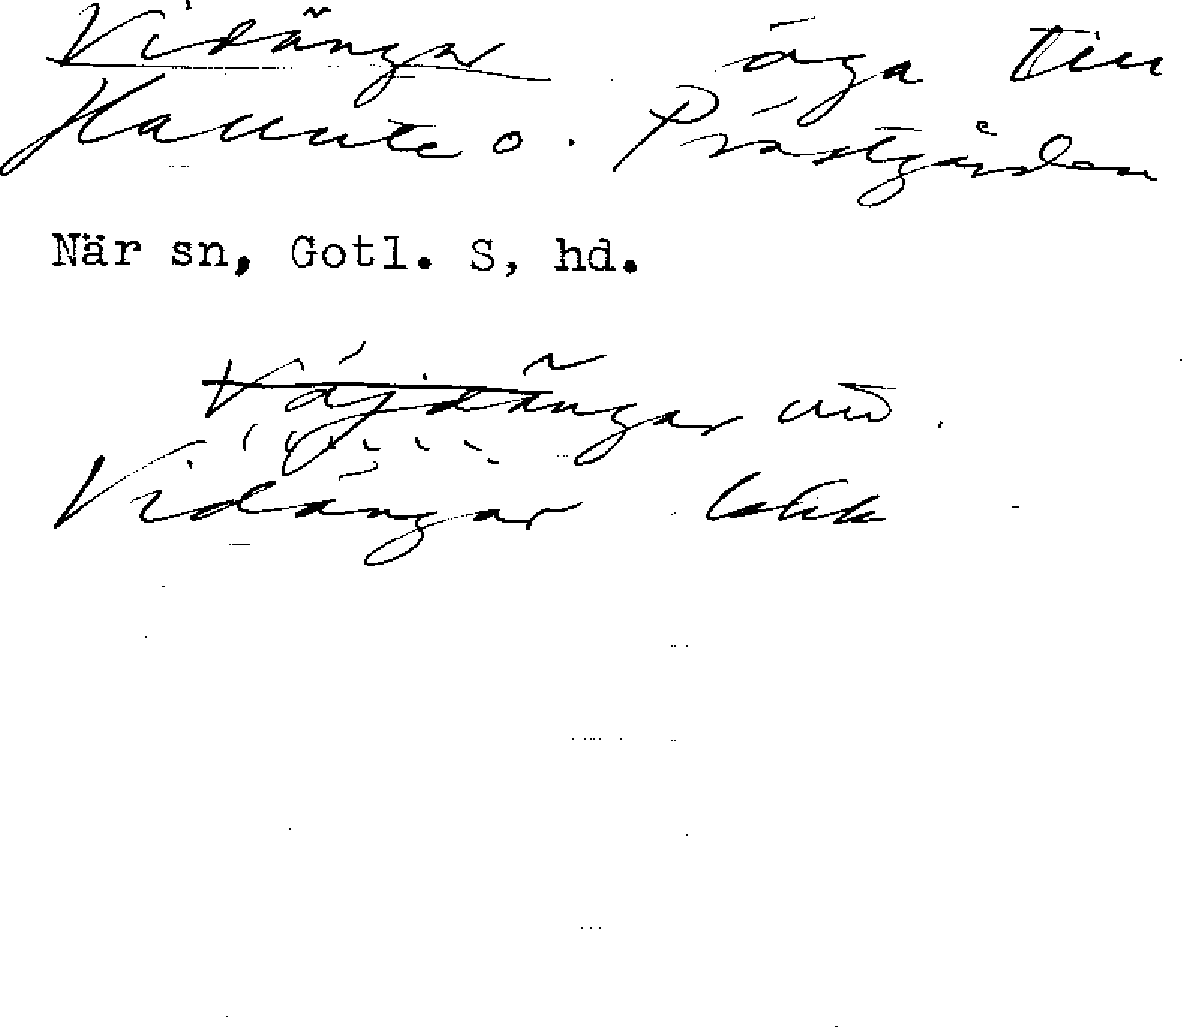 Vidängar äga till
Hallute o. Prästgården
När sn, Gotl. S, hd.
Väjdängar
Vidängar